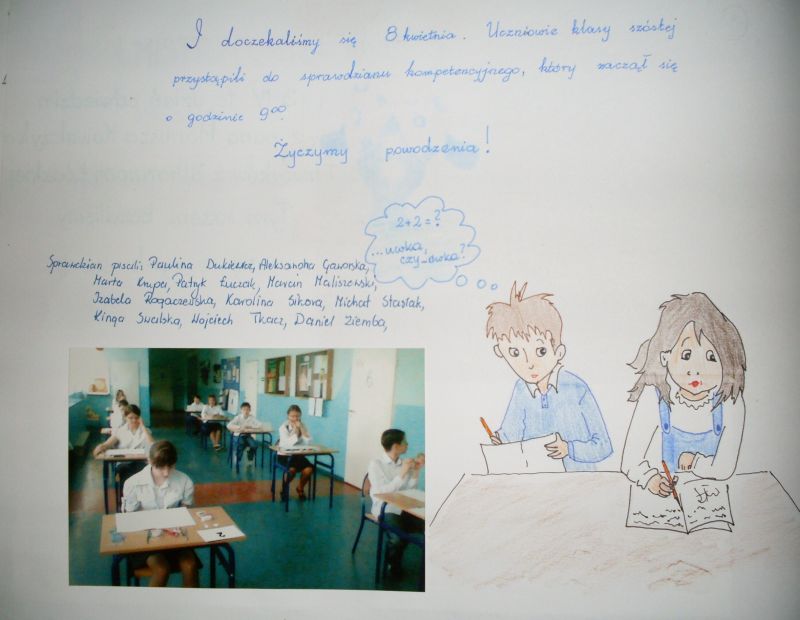 I doczekaliśmy się 8 kwietnia. Uczniowie klasy szóstej
przystąpili do sprawdzianu kompetencyjnego, który zaczął się
o godzinie 9⁰⁰.
Życzymy powodzenia!
2+2=?
...uwka,
czy -ówka?
Sprawdzian pisali: Paulina Dukiewicz, Aleksandra Gaworska,
Marta Krupa, Patryk Łuczak, Marcin Maliszewski,
Izabela Rogaczewska, Karolina Sikora, Michał Stasiak,
Kinga Swalska, Wojciech Tkacz, Daniel Ziemba,
2